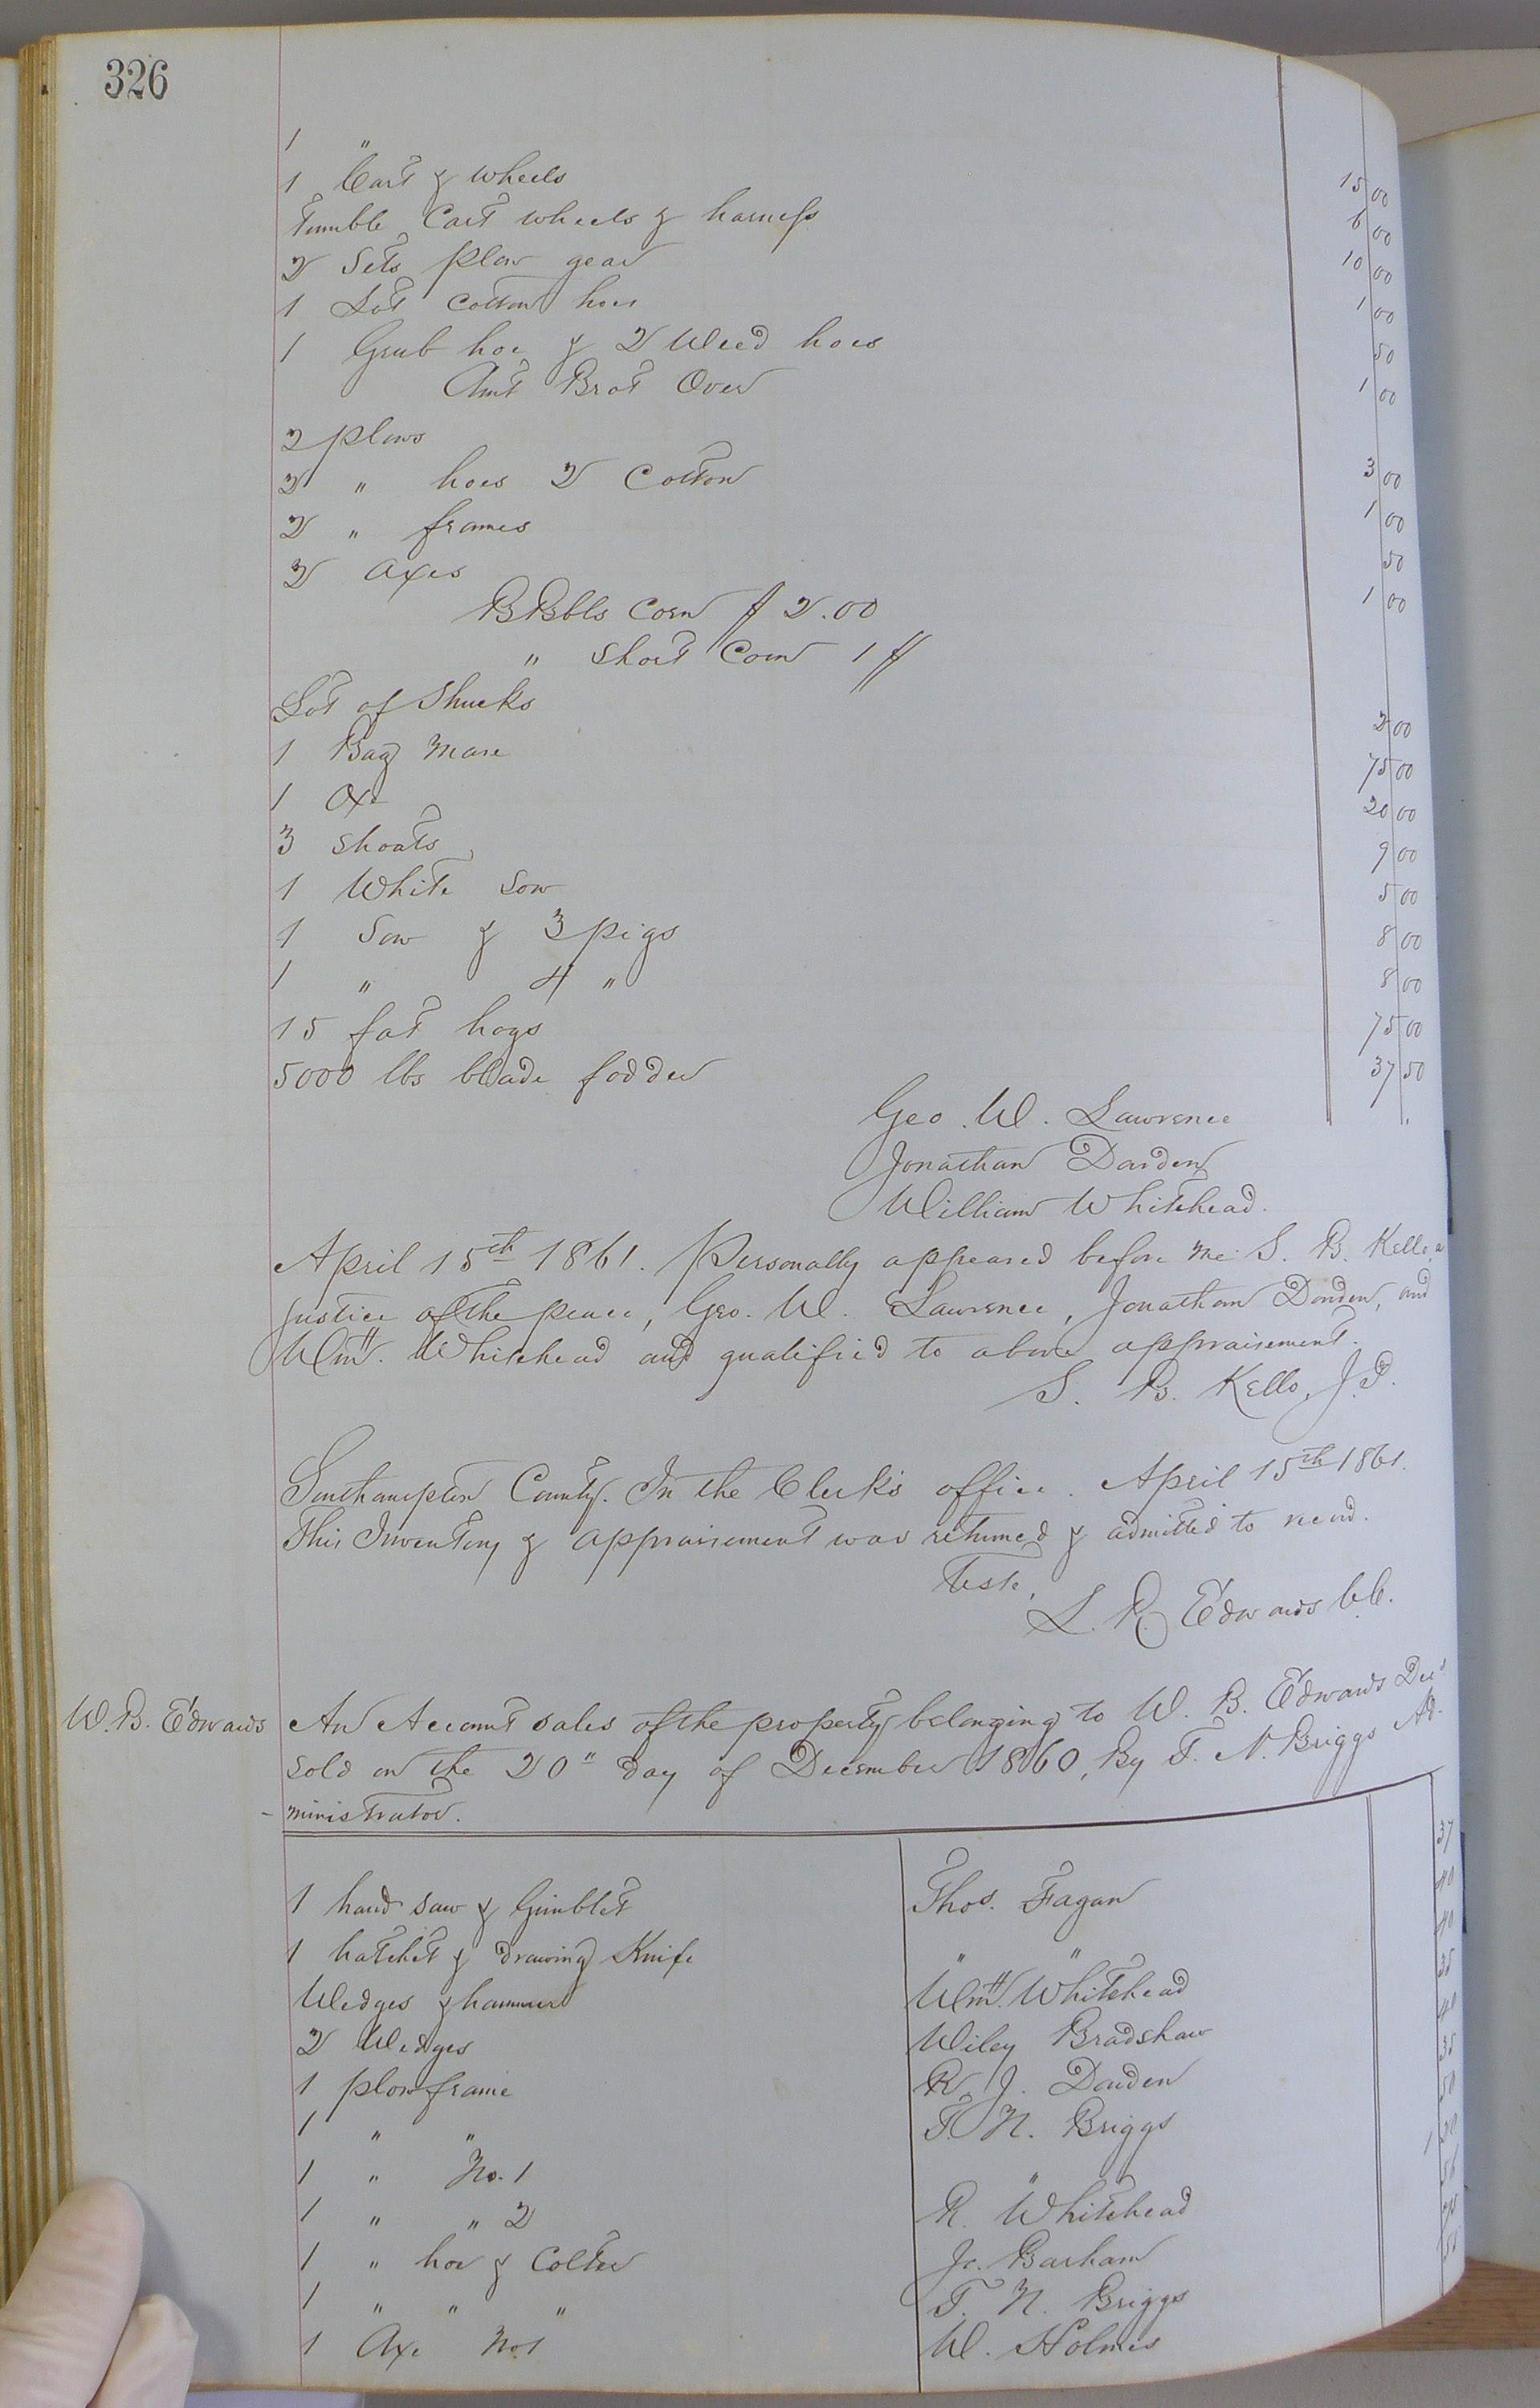 326
1 "
1 Cart & Wheels 15 00
Tumble Cart wheels & harness 6 00
2 Sets plow gear 10 00
1 Lot Cotton hoes 1 00
1 Grub hoe & 2 Weed hoes 50
Amt Brot Over 1 00
2 plows
2 " hoes 2 Cotton 3 00
2 " frames 1 00
2 Axes 50
Bbls Corn 2.00 1 00
" Short Corn 1
Lot of Shucks 2 00
1 Bay Mare 75 00
1 Ox 20 00
3 Shoats 9 00
1 White Sow 5 00
1 Sow & 3 pigs 8 00
1 " 4 " 8 00
15 fat hogs 75 00
5000 lbs blade fodder 37 50
Geo. W. Lawrence
Jonathan Darden
William Whitehead.
April 15th 1861. Personally appeared before me S. B. Kello, a
justice of the peace, Geo. W. Lawrence, Jonathan Darden, and
Wm. Whitehead and qualified to above appraisement.
S. B. Kello, J.P.
Southampton County. In the Clerk's office. April 15th 1861.
This Inventory & appraisement was returned & admitted to record.
Teste,
L. R. Edwards C.C.
W. B. Edwards An Account sales of the property belonging to W. B. Edwards Decd
sold on the 20" day of December 1860, By T. N. Briggs Ad-
-ministrator.
37
1 hand saw & Gimblet Thos. Fagan 40
1 hatchet & drawing Knife " " 40
Wedges & hammer Wm. Whitehead 35
2 Wedges Wiley Bradshaw 40
1 plow frame R. J. Darden 35
1 " " T. N. Briggs 50
1 " No. 1 "
1 " " 2 R. Whitehead
1 " hoe & Colter Jr. Barham
1 " " " T. N. Briggs 55
1 Axe No1 W. Holmes